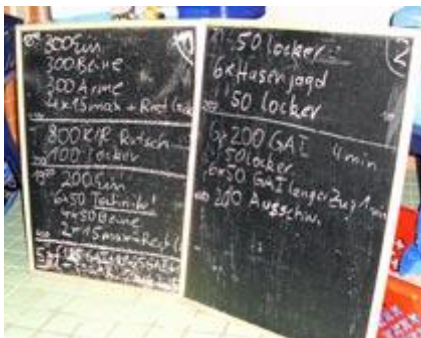 300 Ein
300 Beine
300 Arme
4x15max + Rest
800 K/R Rutsch
100 locker
200 Ein
6x50 Technik
4x50 Beine
2x15max + Rest
2
50 locker
6x Hasenjagd
50 locker
6x200 GAI 4min
50 locker
6x50 GAI langer Zug 1min
200 Ausschw.